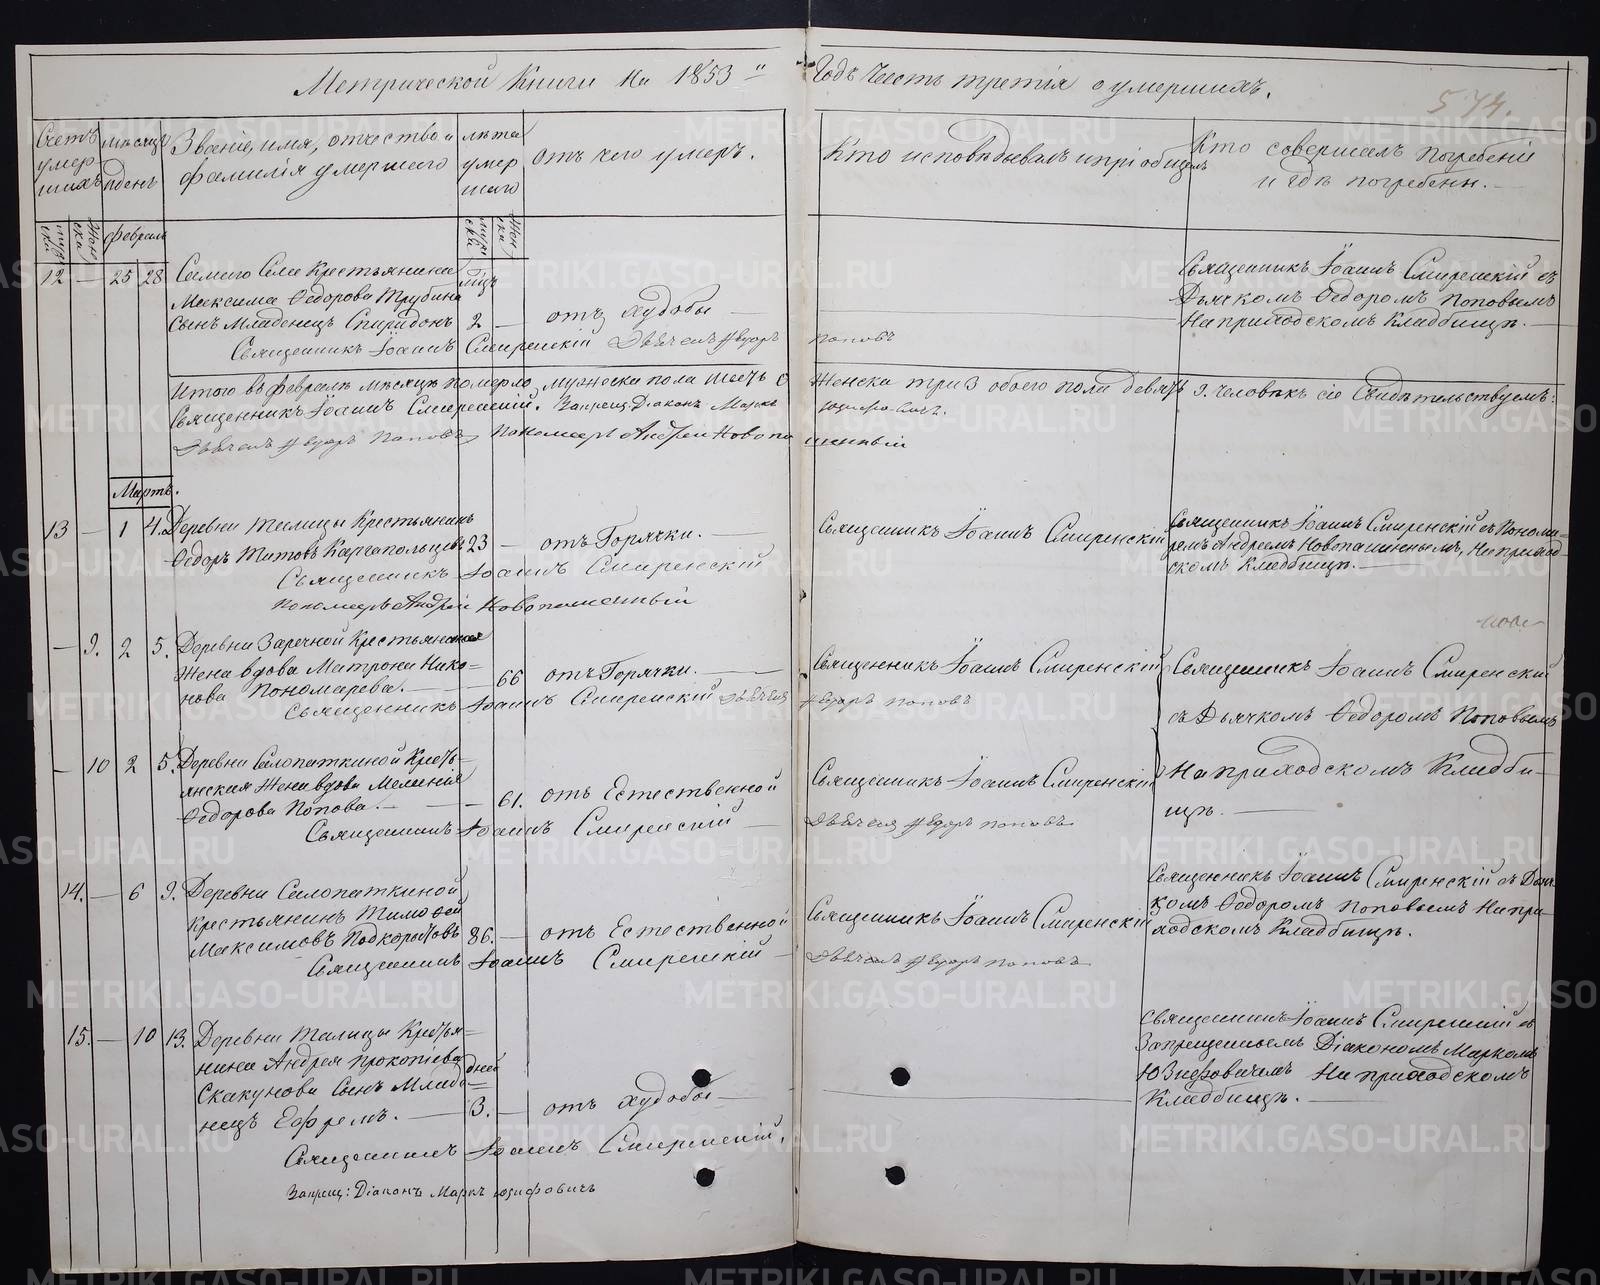 Метрической Книги На 1853" Годъ Часть третія о умершихъ.
574.
Счетъ умер-шихъ
мѣсяцъ и день
Званіе, имя, отчество и фамилія умершаго
лѣта умер шаго
отъ чего умеръ.
Кто исповѣдывалъ и пріобщалъ
Кто совершалъ погребеніе и гдѣ погребены.
муже ска
Жен ска
Февраль
муже ска
Жен ска
12 — 25 28
Самаго Села Крестьянина
Максима Ѳедорова Трубина
сынъ Младенецъ Спиридонъ
мѣцъ
2 —
отъ худобы —
Священникъ Іоаннъ Смиренскій съ
Дьячкомъ Ѳедоромъ Поповымъ
На приходскомъ Кладбищѣ.
Священникъ Іоаннъ Смиренскій Дьячекъ Ѳедоръ Поповъ
Итого въ Февралѣ мѣсяцѣ померло, мужеска пола шесть 6 Женска три 3 обоего пола девять 9. человѣкъ сіе Свидѣтельствуемъ:
Священникъ Іоаннъ Смиренскій. Запрещ. Діаконъ Маркъ Юзифовичъ.
Дьячекъ Ѳедоръ Поповъ, Пономарь Андрей Новопашенный
Мартъ.
13 — 1 4.
Деревни Талицы Крестьянинъ
Ѳедоръ Титовъ Каргапольцевъ
23 —
отъ Горячки. —
Священникъ Іоаннъ Смиренскій
Священникъ Іоаннъ Смиренскій съ Понома-
ремъ Андреемъ Новопашеннымъ, На приход-
скомъ Кладбищѣ. —
Священникъ Іоаннъ Смиренскій
Пономарь Андрей Новопашенный
— 9. 2 5.
Деревни Заречной Крестьянская
Жена вдова Матрона Нико-
нова Пономарева. —
66
отъ Горячки. —
Священникъ Іоаннъ Смиренскій
Священникъ Іоаннъ Смиренскій
съ Дьячкомъ Ѳедоромъ Поповымъ
На приходскомъ Кладби-
щѣ. —
Священникъ Іоаннъ Смиренскій Дьячекъ Ѳедоръ Поповъ
— 10 2 5.
Деревни Салопаткиной Кресть-
янская Жена вдова Меланія
Ѳедорова Попова. —
— 61.
отъ Естественной
Священникъ Іоаннъ Смиренскій
Священникъ Іоаннъ Смиренскій —
Дьячекъ Ѳедоръ Поповъ
14. — 6 9.
Деревни Салопаткиной
Крестьянинъ Тимоѳей
Максимовъ Подкорытовъ
86. —
отъ Естественной
Священникъ Іоаннъ Смиренскій
Священникъ Іоаннъ Смиренскій съ Дьяч-
комъ Ѳедоромъ Поповымъ На при-
ходскомъ Кладбищѣ.
Священникъ Іоаннъ Смиренскій —
Дьячекъ Ѳедоръ Поповъ
15. — 10 13.
Деревни Талицы Крестья-
нина Андрея Прокопіева
Скакунова Сынъ Младе-
нецъ Ефремъ. —
дней
3. —
отъ худобы —
Священникъ Іоаннъ Смиренскій съ
Запрещеннымъ Діакономъ Маркомъ
Юзифовичемъ На приходскомъ
Кладбищѣ. —
Священникъ Іоаннъ Смиренскій.
Запрещ: Діаконъ Маркъ Юзифовичь
METRIKI.GASO-URAL.RU